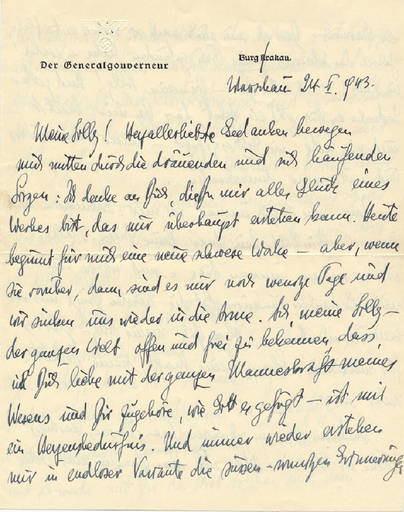 Der Generalgouverneur
Burg Krakau.
Warschau 24. V. 1943.
Meine Lilly! Herzallerliebste Gedanken bewegen
mich mitten durch die dräuenden und sich häufenden
Sorgen: Ich denke an Dich, die Du mir alles Glück eines
Werkes bist, das mir überhaupt erstehen kann. Heute
beginnt für mich eine neue schwere Woche – aber, wenn
sie vorüber, dann sind es nur noch wenige Tage und
wir sinken uns wieder in die Arme. Dir meine Lilly –
der ganzen Welt offen und frei zu bekennen, dass
ich Dich liebe mit der ganzen Manneskraft meines
Wesens und Dir zugehöre, wie Gott es gefügt – ist mir
ein Herzensbedürfnis. Und immer wieder erstehen
mir in endloser Variante die süssen Erinnerungen